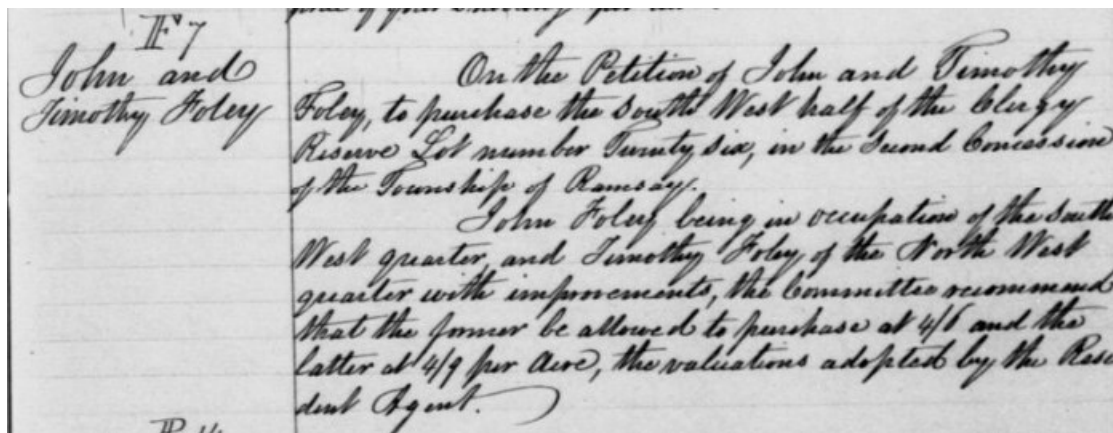 F 7
John and
Timothy Foley
On the Petition of John and Timothy
Foley, to purchase the South West half of the Clergy
Reserve Lot number Twenty six, in the Second Concession
of the Township of Ramsay.
John Foley being in occupation of the South
West quarter, and Timothy Foley of the North West
quarter with improvements, the Committee recommend
that the former be allowed to purchase at 4/6 and the
latter at 4/9 per Acre, the valuations adopted by the Resi
dent Agent.